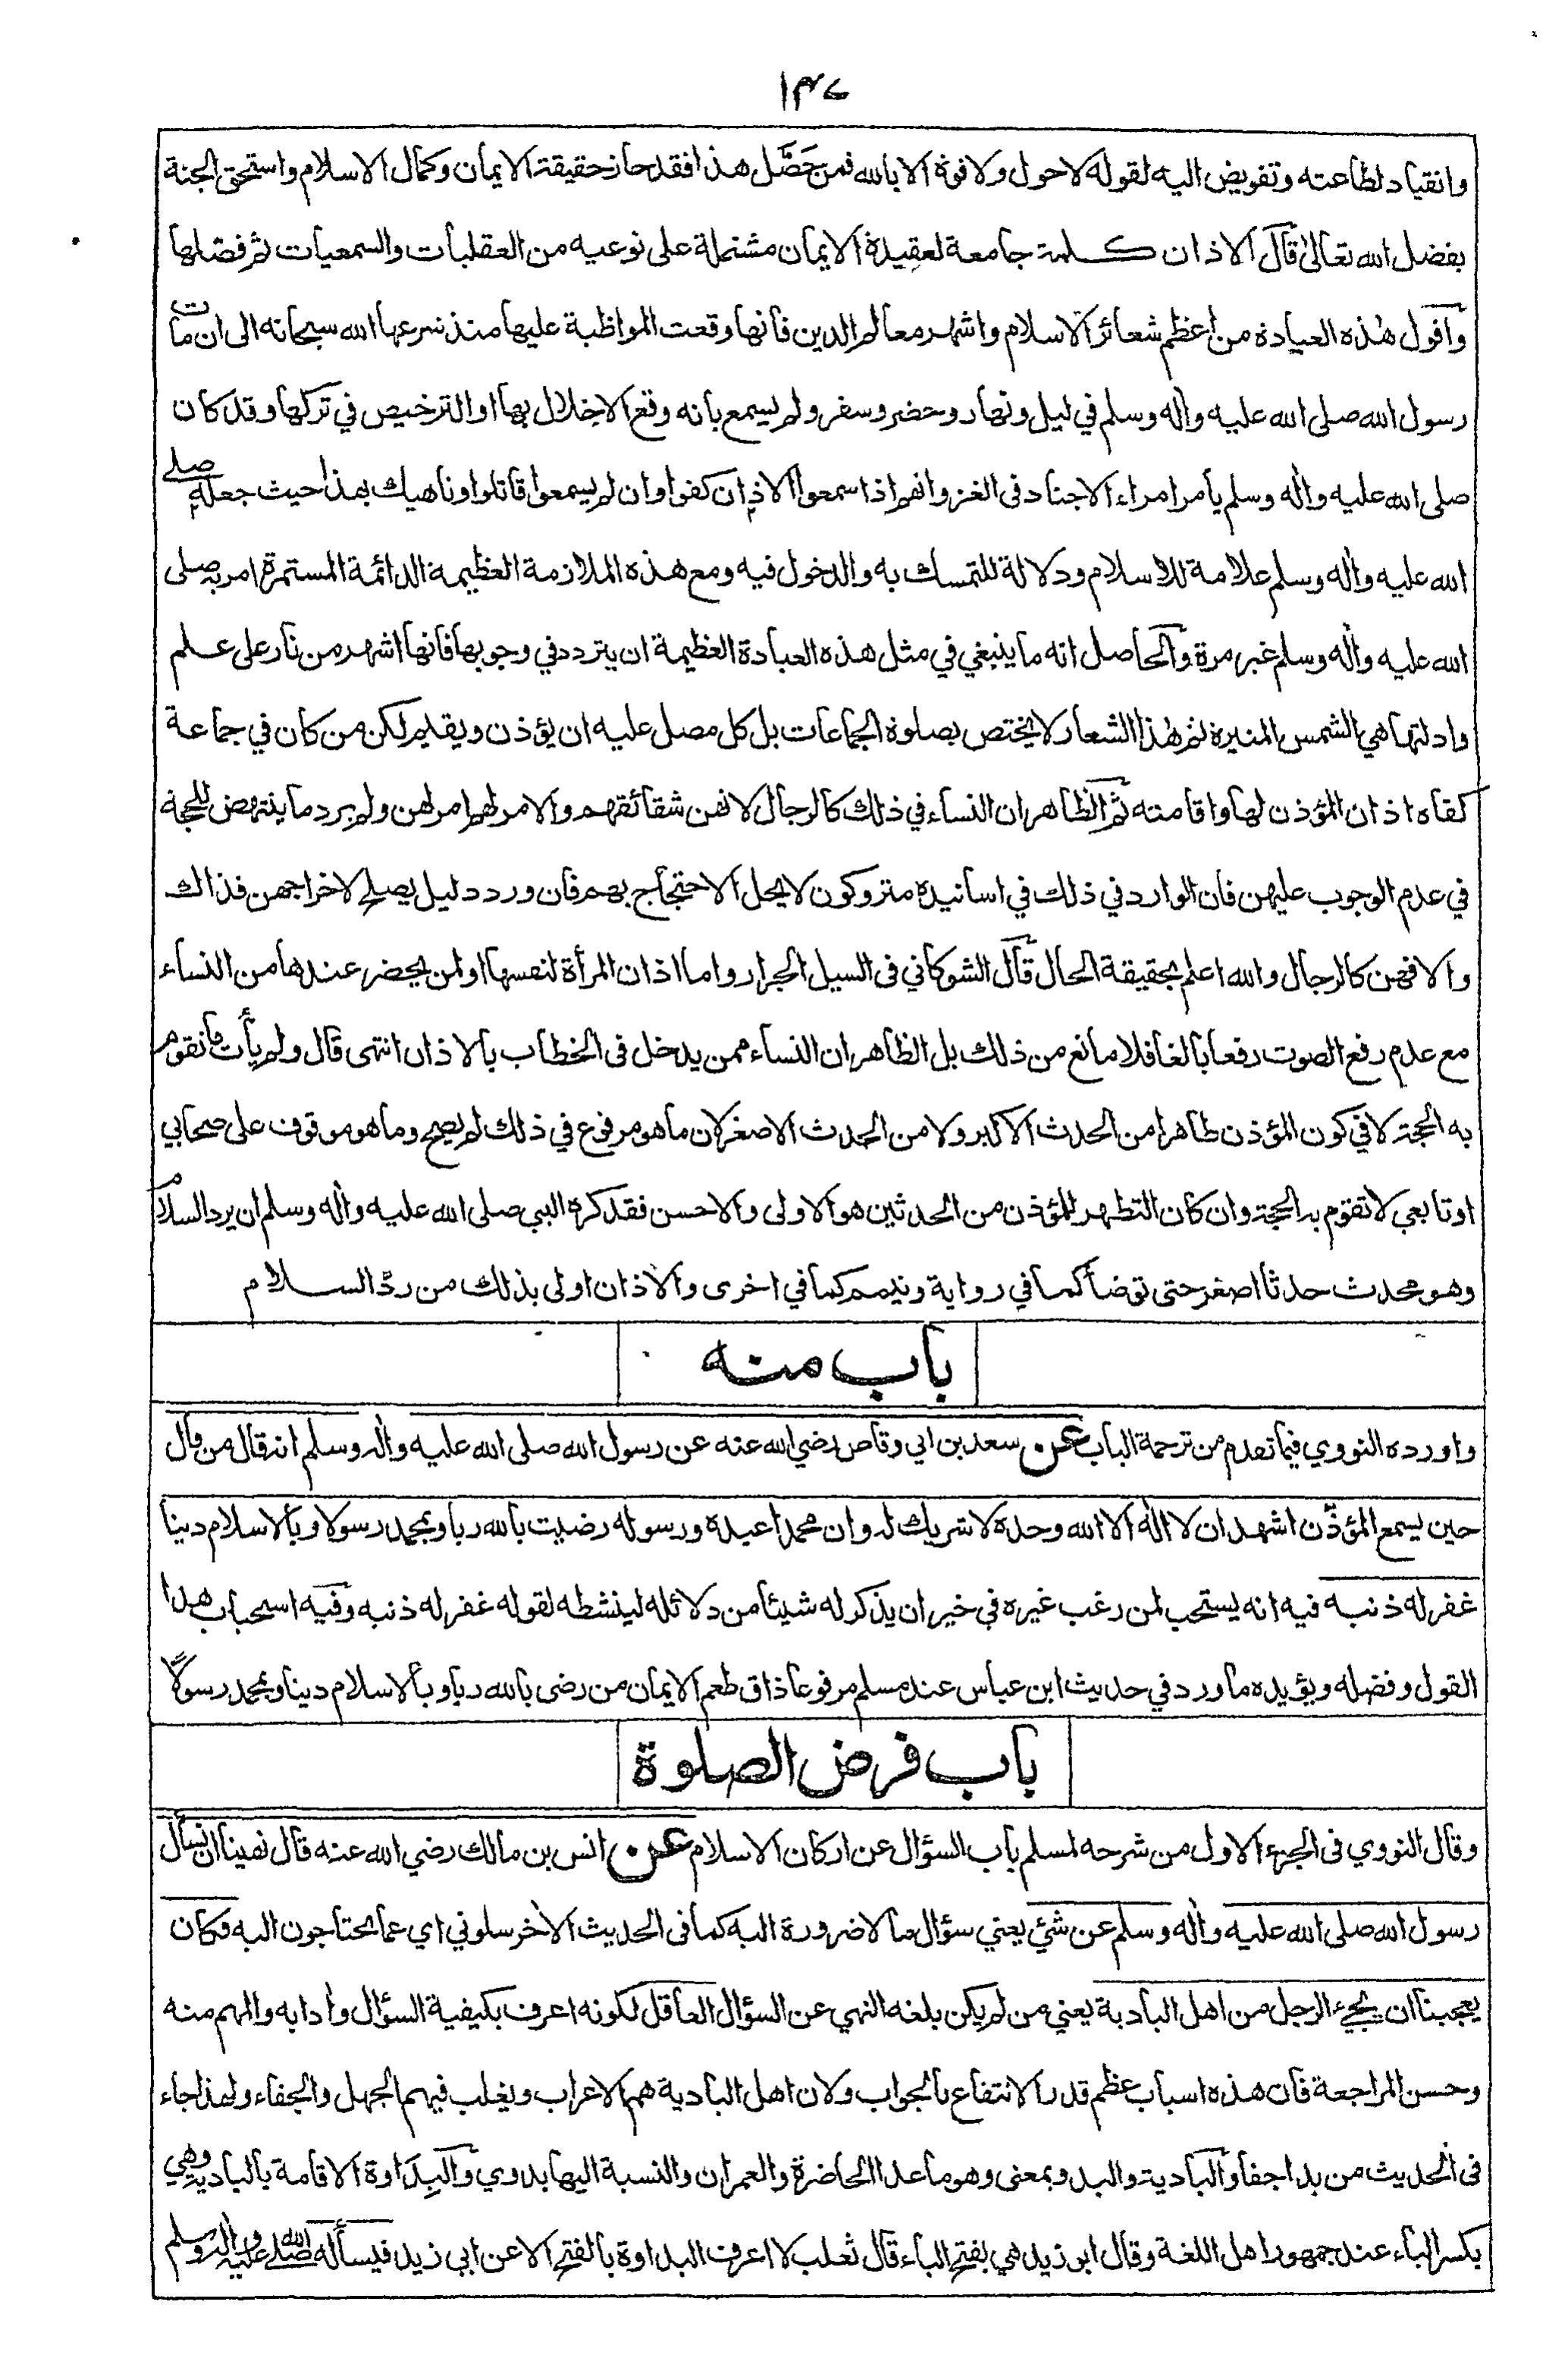 ١٣٧
وانقياد لطاعته وتفويض اليه لقوله لاحول ولا قوة الا بالله فمن حَصَّل هذا فقد حاز حقيقة الايمان وكمال الاسلام واستحق الجنة
بفضل الله تعالى قال الاذان كلمة جامعة لعقيدة الايمان مشتملة على نوعيه من العقليات والسمعيات ثم فصلها
واقول هذه العبادة من اعظم شعائر الاسلام واشهر معالم الدين فانها وقعت المواظبة عليها منذ شرعها الله سبحانه الى ان مات
رسول الله صلى الله عليه واله وسلم في ليل ونهار وحضر وسفر ولم يسمع بانه وقع الاخلال بها او الترخيص في تركها وقد كان
صلى الله عليه واله وسلم يأمر امراء الاجناد في الغزو انهم اذا سمعوا الاذان كفوا وان لم يسمعوا قاتلوا وناهيك بهذا حيث جعله صلى
الله عليه واله وسلم علامة للاسلام ودلالة للتمسك به والدخول فيه ومع هذه الملازمة العظيمة الدائمة المستمرة امر به صلى
الله عليه واله وسلم غير مرة والحاصل انه ما ينبغي في مثل هذه العبادة العظيمة ان يتردد في وجوبها فانها اشهر من نار على علم
وادلتها هي الشمس المنيرة ثم هذا الشعار لا يختص بصلوة الجماعات بل كل مصل عليه ان يؤذن ويقيم لكن من كان في جماعة
كفاه اذان المؤذن لها واقامته ثم الظاهر ان النساء في ذلك كالرجال لانهن شقائقهم والامر لهم امر لهن ولم يرد ما ينتهض للحجة
في عدم الوجوب عليهن فان الوارد في ذلك في اسانيده متروكون لا يحل الاحتجاج بهم فان ورد دليل يصلح لاخراجهن فذاك
والا فهن كالرجال والله اعلم بحقيقة الحال قال الشوكاني في السيل الجرار واما اذان المرأة لنفسها او لمن يحضر عندها من النساء
مع عدم رفع الصوت رفعا بالغا فلا مانع من ذلك بل الظاهر ان النساء ممن يدخل في الخطاب بالاذان انتهى قال ولم يأت ما تقوم
به الحجة لا في كون المؤذن طاهرا من الحدث الاكبر ولا من الحدث الاصغر لان ما هو مرفوع في ذلك لم يصح وما هو موقوف على صحابي
او تابعي لا تقوم به الحجة وان كان التطهر للمؤذن من الحدثين هو الاولى والاحسن فقد كره النبي صلى الله عليه واله وسلم ان يرد السلام
وهو محدث حدثا اصغر حتى توضأ كما في رواية وتيمم كما في اخرى والاذان اولى بذلك من ردّ السلام
باب منه
واورده النووي فيما تقدم من ترجمة الباب عن سعد بن ابي وقاص رضي الله عنه عن رسول الله صلى الله عليه واله وسلم انه قال من قال
حين يسمع المؤذّن اشهد ان لا اله الا الله وحده لا شريك له وان محمدا عبده ورسوله رضيت بالله ربا وبمحمد رسولا وبالاسلام دينا
غفر له ذنبه فيه انه يستحب لمن رغب غيره في خير ان يذكر له شيئا من دلائله لينشطه لقوله غفر له ذنبه وفيه استحباب هذا
القول وفضله ويؤيده ما ورد في حديث ابن عباس عند مسلم مرفوعا ذاق طعم الايمان من رضى بالله ربا وبالاسلام دينا وبمحمد رسولاً
باب فرض الصلوة
وقال النووي في الجزء الاول من شرحه لمسلم باب السؤال عن اركان الاسلام عن انس بن مالك رضي الله عنه قال نهينا ان نسأل
رسول الله صلى الله عليه واله وسلم عن شئ يعني سؤال ما لا ضرورة اليه كما في الحديث الاخر سلوني اي عما تحتاجون اليه فكان
يعجبنا ان يجيء الرجل من اهل البادية يعني من لم يكن بلغه النهي عن السؤال العاقل لكونه اعرف بكيفية السؤال وادابه والمهم منه
وحسن المراجعة فان هذه اسباب عظم قدر الانتفاع بالجواب ولان اهل البادية هم الاعراب ويغلب فيهم الجهل والجفاء ولهذا جاء
في الحديث من بدا جفا والبادية والبدو بمعنى وهو ما عدا الحاضرة والعمران والنسبة اليها بدوي والبِدَاوة الاقامة بالبادية وهي
بكسر الباء عند جمهور اهل اللغة وقال ابو زيد هي بفتح الباء قال ثعلب لا اعرف البداوة بالفتح الا عن ابي زيد فيسأله صلى الله عليه واله وسلم